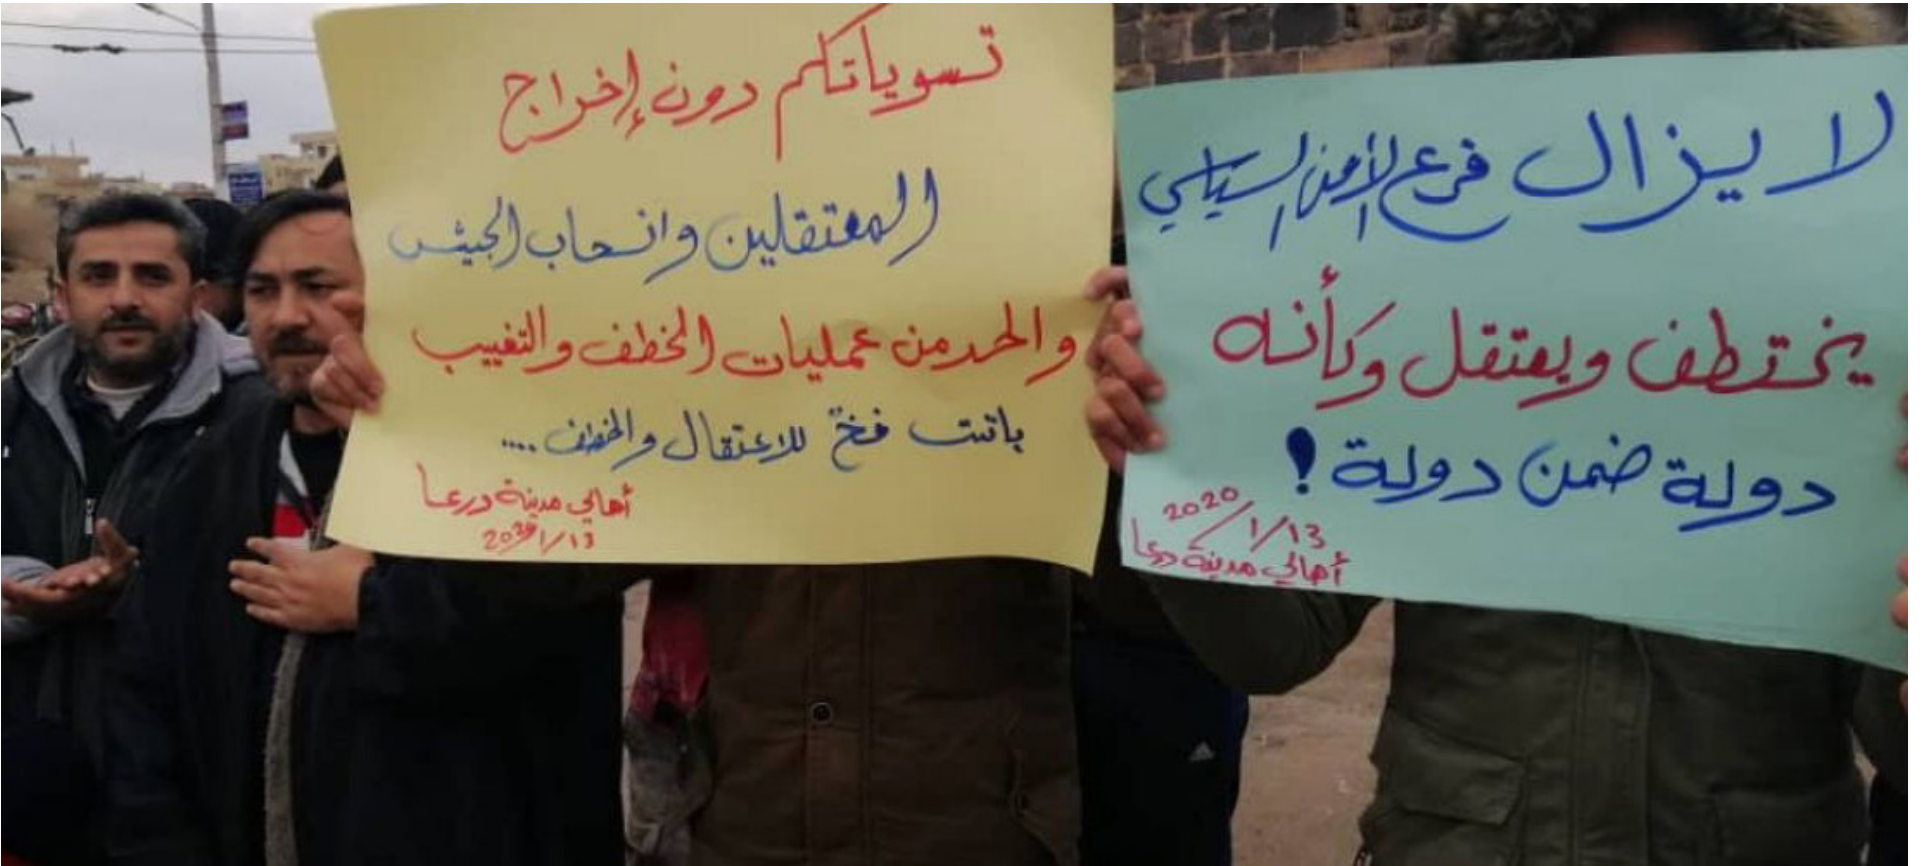 لا يزال فرع الأمن السياسي
يختطف ويعتقل وكأنه
دولة ضمن دولة !
2020/1/13
أهالي مدينة درعا
تسوياتكم دون إخراج
المعتقلين وانسحاب الجيش
والحد من عمليات الخطف والتغييب
باتت فخ للاعتقال والخطف ....
أهالي مدينة درعا
13/1/2020